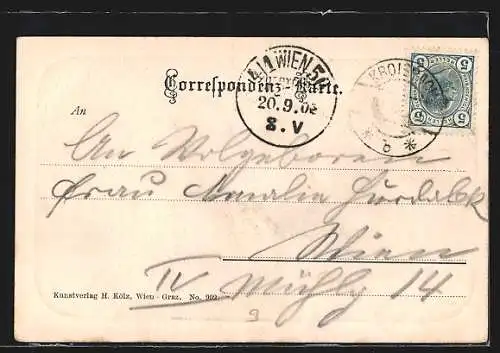 Correspondenz-Karte.
4/1 WIEN 5/1
20.9.02
8.V
KROIS
5 5
5 5
An
An Wolgeboren
Frau Amalia
Wien
IV Mühlg 14
Kunstverlag H. Kölz, Wien-Graz. No. 902.
9